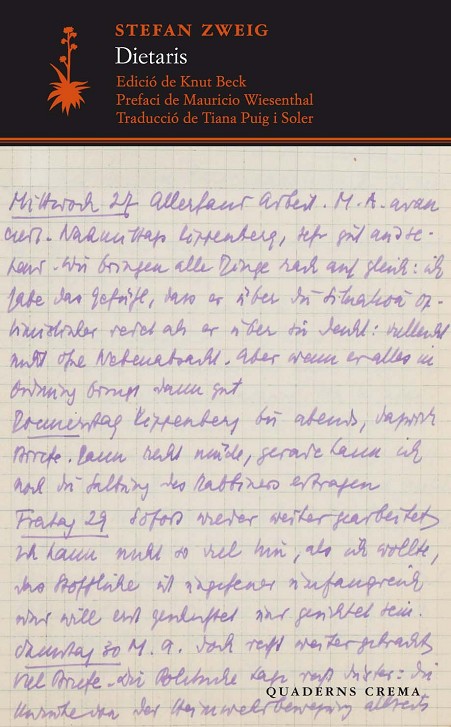 STEFAN ZWEIG
Dietaris
Edició de Knut Beck
Prefaci de Mauricio Wiesenthal
Traducció de Tiana Puig i Soler
Mittwoch 27 Allerhand Arbeit. M. A. avan
ciert. Nachmittags Kippenberg, sehr gut und
Wir bringen alle Dinge rasch auf gleich: ich
habe das Gefühl, dass er über die Situation op-
timistischer redet als er über sie denkt: vielleicht
nicht ohne Nebenabsicht. Aber wenn er alles in
Ordnung bringt dann gut
Donnerstag Kippenberg bis abends, dazwisch
Briefe. Dann recht müde, gerade kann ich
noch die des Rabbiners ertragen
Freitag 29 Sofort wieder weiter gearbeitet
ich kann nicht so viel hin, als ich wollte,
das Stoffliche ist ungeheuer umfangreich
und will erst und gesichtet sein.
Samstag 30 M. A. doch recht weitergebracht
viel Briefe. Die Politische Lage recht düster: die
von der Heimwehrbewegung
QUADERNS CREMA